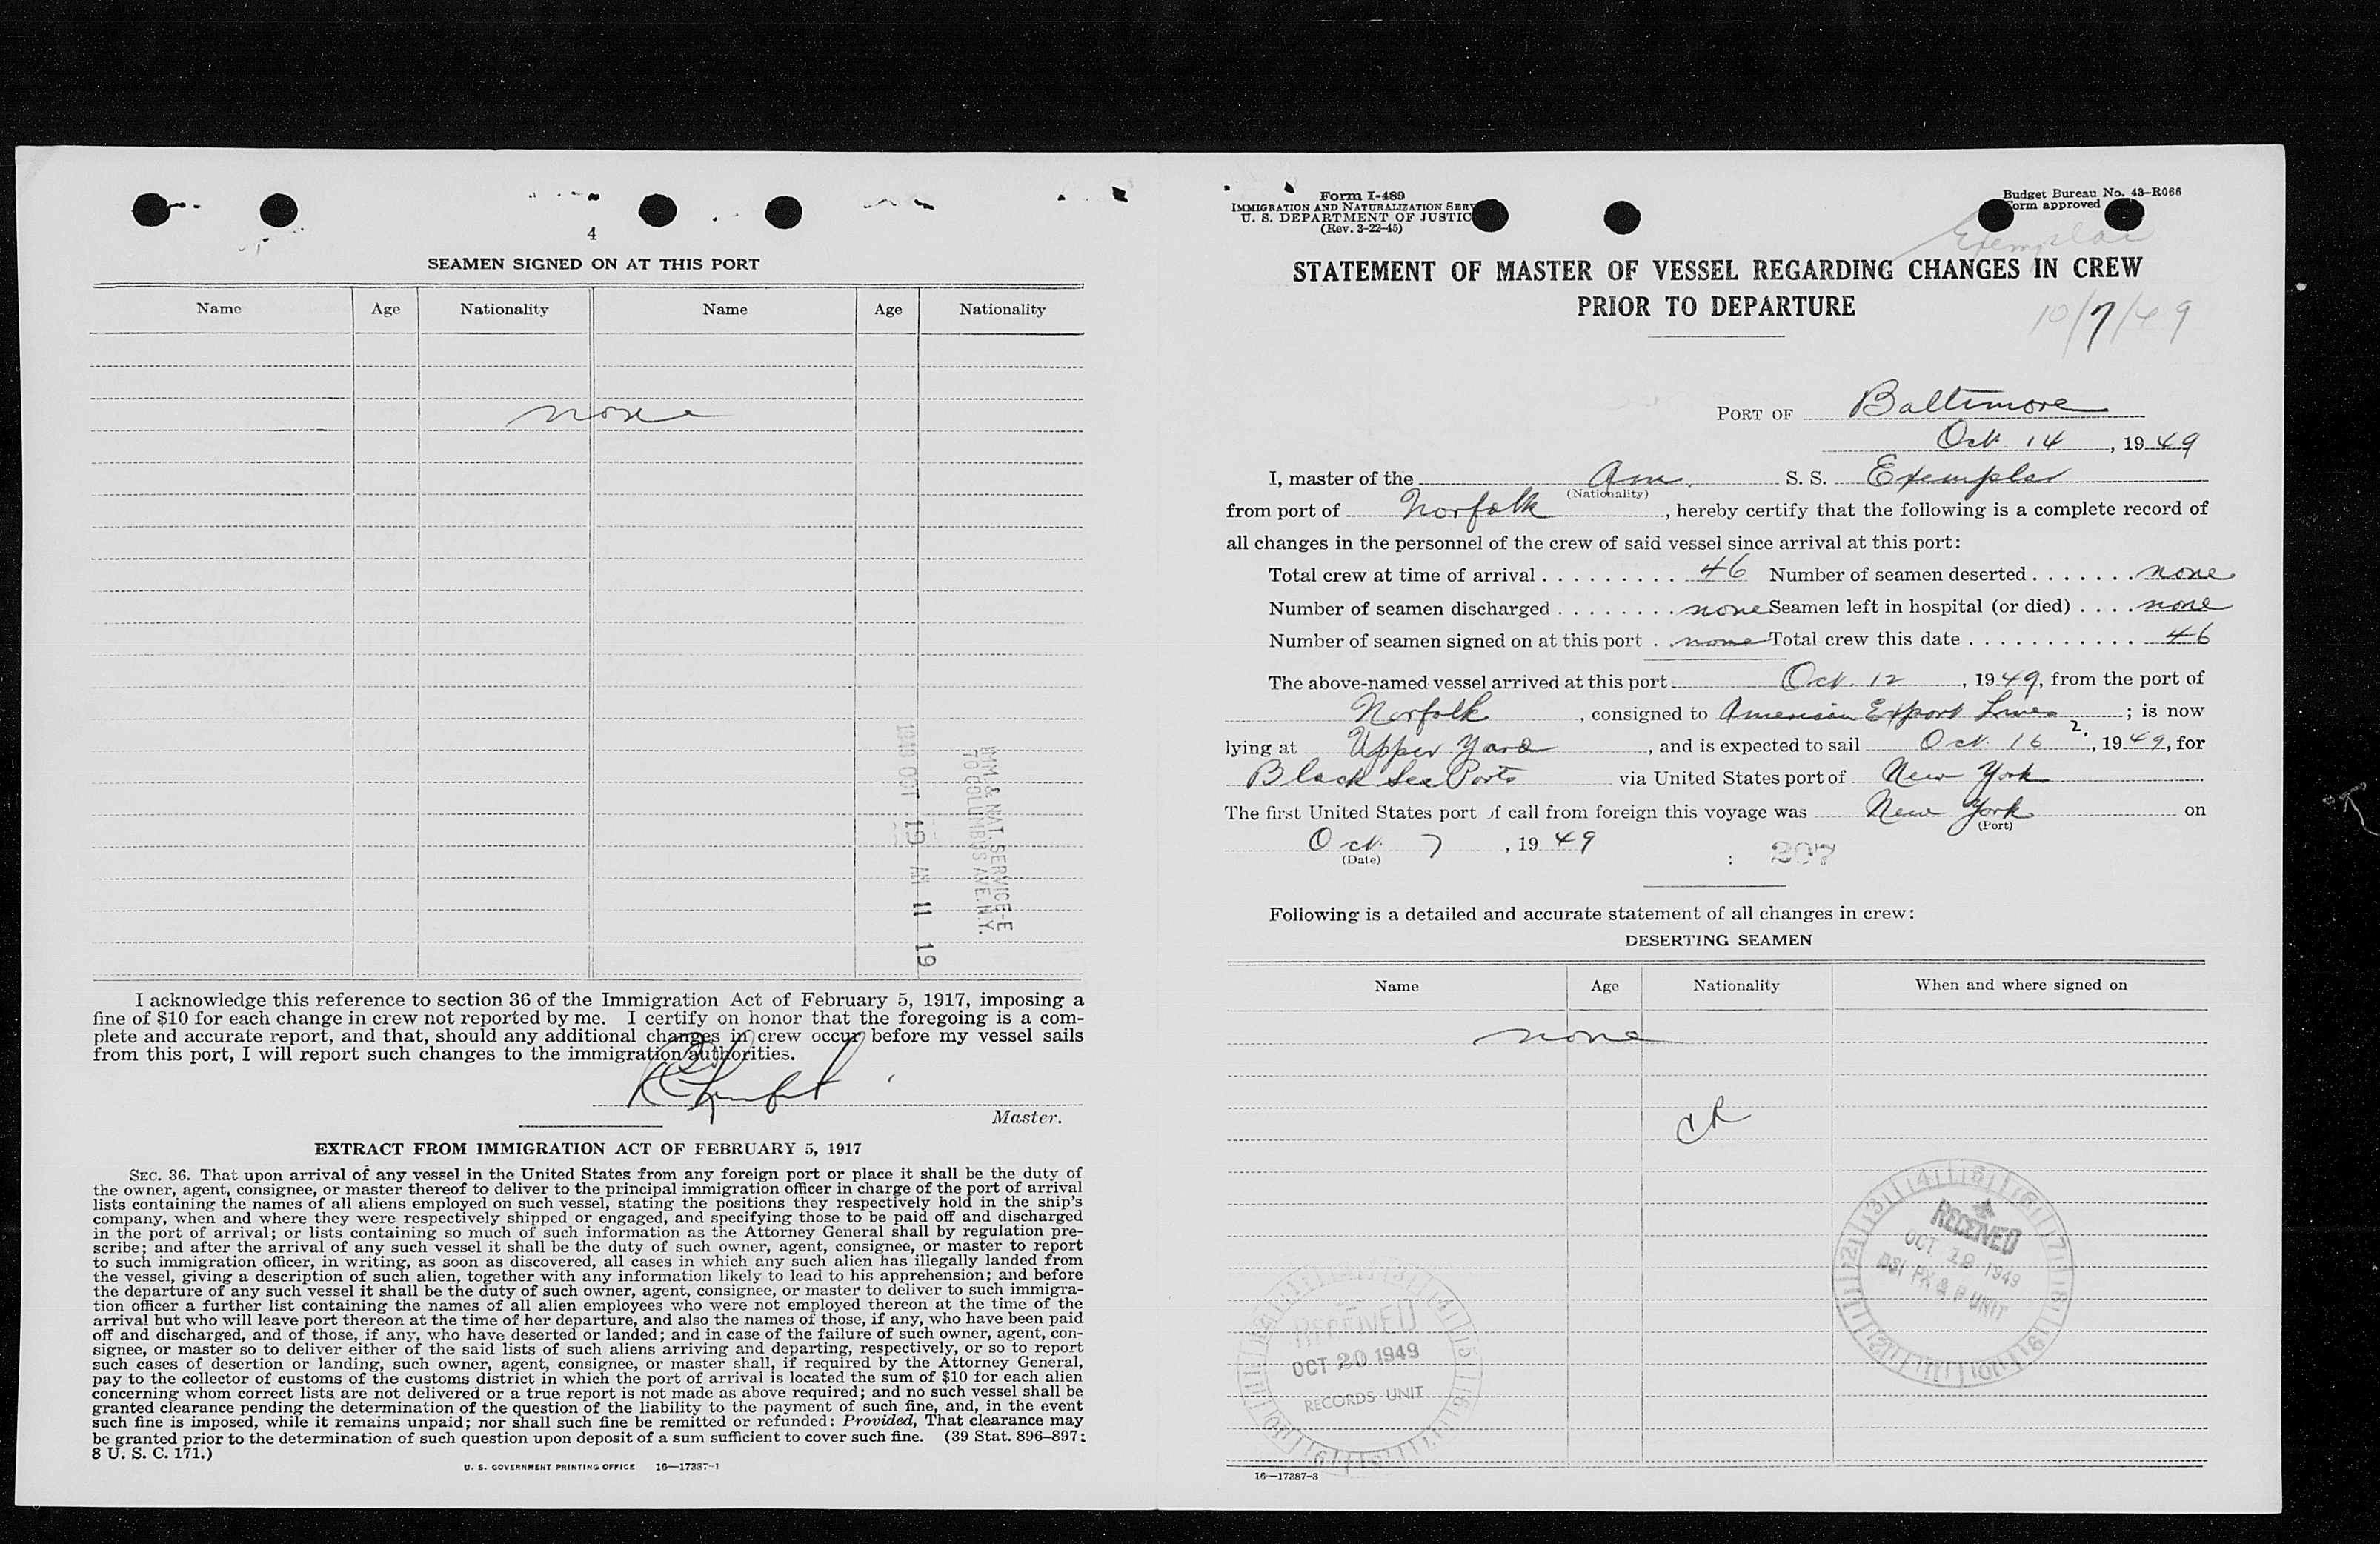 4
SEAMEN SIGNED ON AT THIS PORT
Name Age Nationality Name Age Nationality
none
1949 OCT 19 AM 11 19
IMM. & NAT. SERVICE-E
70 COLUMBUS AVE. N.Y.
I acknowledge this reference to section 36 of the Immigration Act of February 5, 1917, imposing a
fine of $10 for each change in crew not reported by me. I certify on honor that the foregoing is a com-
plete and accurate report, and that, should any additional changes in crew occur before my vessel sails
from this port, I will report such changes to the immigration authorities.
Master.
EXTRACT FROM IMMIGRATION ACT OF FEBRUARY 5, 1917
SEC. 36. That upon arrival of any vessel in the United States from any foreign port or place it shall be the duty of
the owner, agent, consignee, or master thereof to deliver to the principal immigration officer in charge of the port of arrival
lists containing the names of all aliens employed on such vessel, stating the positions they respectively hold in the ship's
company, when and where they were respectively shipped or engaged, and specifying those to be paid off and discharged
in the port of arrival; or lists containing so much of such information as the Attorney General shall by regulation pre-
scribe; and after the arrival of any such vessel it shall be the duty of such owner, agent, consignee, or master to report
to such immigration officer, in writing, as soon as discovered, all cases in which any such alien has illegally landed from
the vessel, giving a description of such alien, together with any information likely to lead to his apprehension; and before
the departure of any such vessel it shall be the duty of such owner, agent, consignee, or master to deliver to such immigra-
tion officer a further list containing the names of all alien employees who were not employed thereon at the time of the
arrival but who will leave port thereon at the time of her departure, and also the names of those, if any, who have been paid
off and discharged, and of those, if any, who have deserted or landed; and in case of the failure of such owner, agent, con-
signee, or master so to deliver either of the said lists of such aliens arriving and departing, respectively, or so to report
such cases of desertion or landing, such owner, agent, consignee, or master shall, if required by the Attorney General,
pay to the collector of customs of the customs district in which the port of arrival is located the sum of $10 for each alien
concerning whom correct lists are not delivered or a true report is not made as above required; and no such vessel shall be
granted clearance pending the determination of the question of the liability to the payment of such fine, and, in the event
such fine is imposed, while it remains unpaid; nor shall such fine be remitted or refunded: Provided, That clearance may
be granted prior to the determination of such question upon deposit of a sum sufficient to cover such fine. (39 Stat. 896-897;
8 U. S. C. 171.)
U. S. GOVERNMENT PRINTING OFFICE 16—17387-1
Form I-489
IMMIGRATION AND NATURALIZATION SERV
U. S. DEPARTMENT OF JUSTIC
(Rev. 3-22-45)
Budget Bureau No. 43-R066
Form approved
Exemplar
10/7/49
STATEMENT OF MASTER OF VESSEL REGARDING CHANGES IN CREW
PRIOR TO DEPARTURE
PORT OF Baltimore
Oct. 14, 1949
I, master of the Am. S. S. Exemplar
(Nationality)
from port of Norfolk, hereby certify that the following is a complete record of
all changes in the personnel of the crew of said vessel since arrival at this port:
Total crew at time of arrival 46 Number of seamen deserted none
Number of seamen discharged none Seamen left in hospital (or died) none
Number of seamen signed on at this port none Total crew this date 46
The above-named vessel arrived at this port Oct. 12, 1949, from the port of
Norfolk, consigned to American Export Lines; is now
lying at Upper Yard, and is expected to sail Oct. 16 2., 1949, for
Black Sea Ports via United States port of New York
The first United States port of call from foreign this voyage was New York on
(Port)
Oct. 7, 1949
(Date)
: 207
Following is a detailed and accurate statement of all changes in crew:
DESERTING SEAMEN
Name Age Nationality When and where signed on
none
RECEIVED
OCT 19 1949
DSI PX & P UNIT
RECEIVED
OCT 20 1949
RECORDS UNIT
16—17387-3